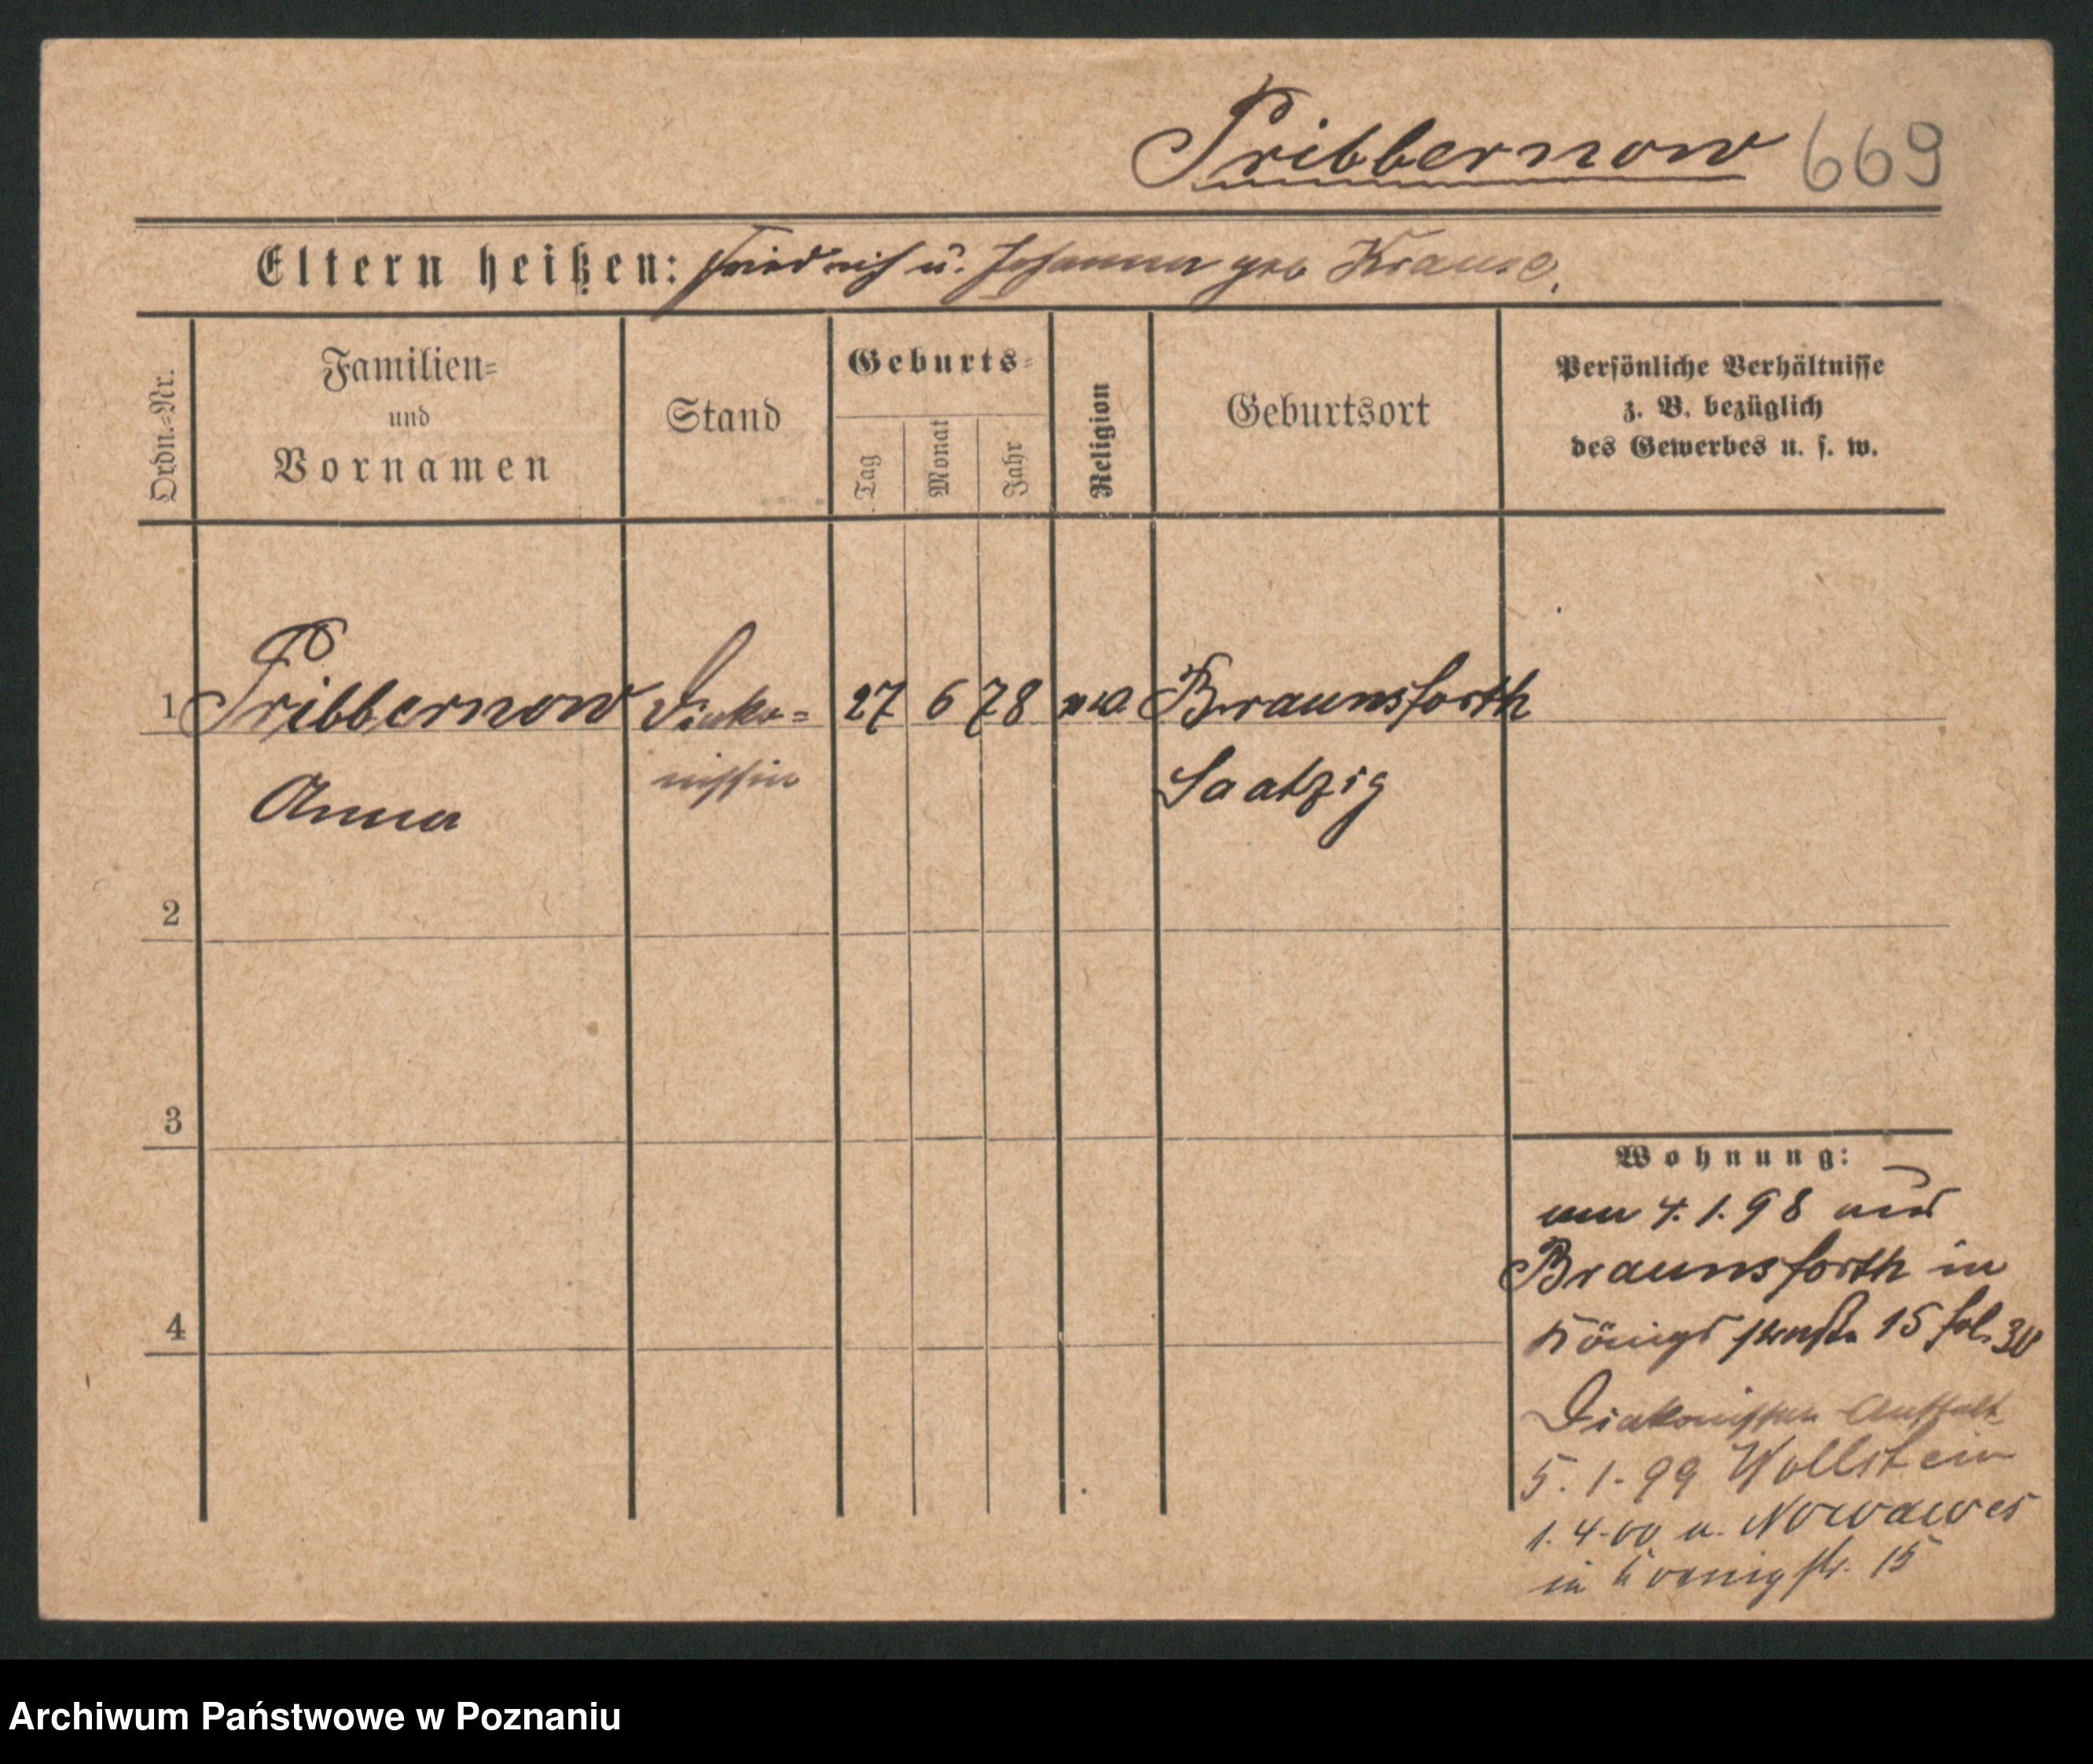 Pribbernow 669
Eltern heißen: Friedrich u. Johanna geb Krause.
Ordn.-Nr.
Familien-
und
Vornamen
Stand
Geburts-
Tag
Monat
Jahr
Religion
Geburtsort
Persönliche Verhältnisse
z. B. bezüglich
des Gewerbes u. s. w.
1 Pribbernow Diako- 27 6 78 Braunsforth
Anna nissin Saatzig
2
3
4
Wohnung:
am 4.1.98 aus
Braunsforth in
Königs 15 fol.
Diakonissen Anstalt
5.1.99 Wollstein
1.4.00 u. Nowawes
in Koenigstr. 15
Archiwum Państwowe w Poznaniu